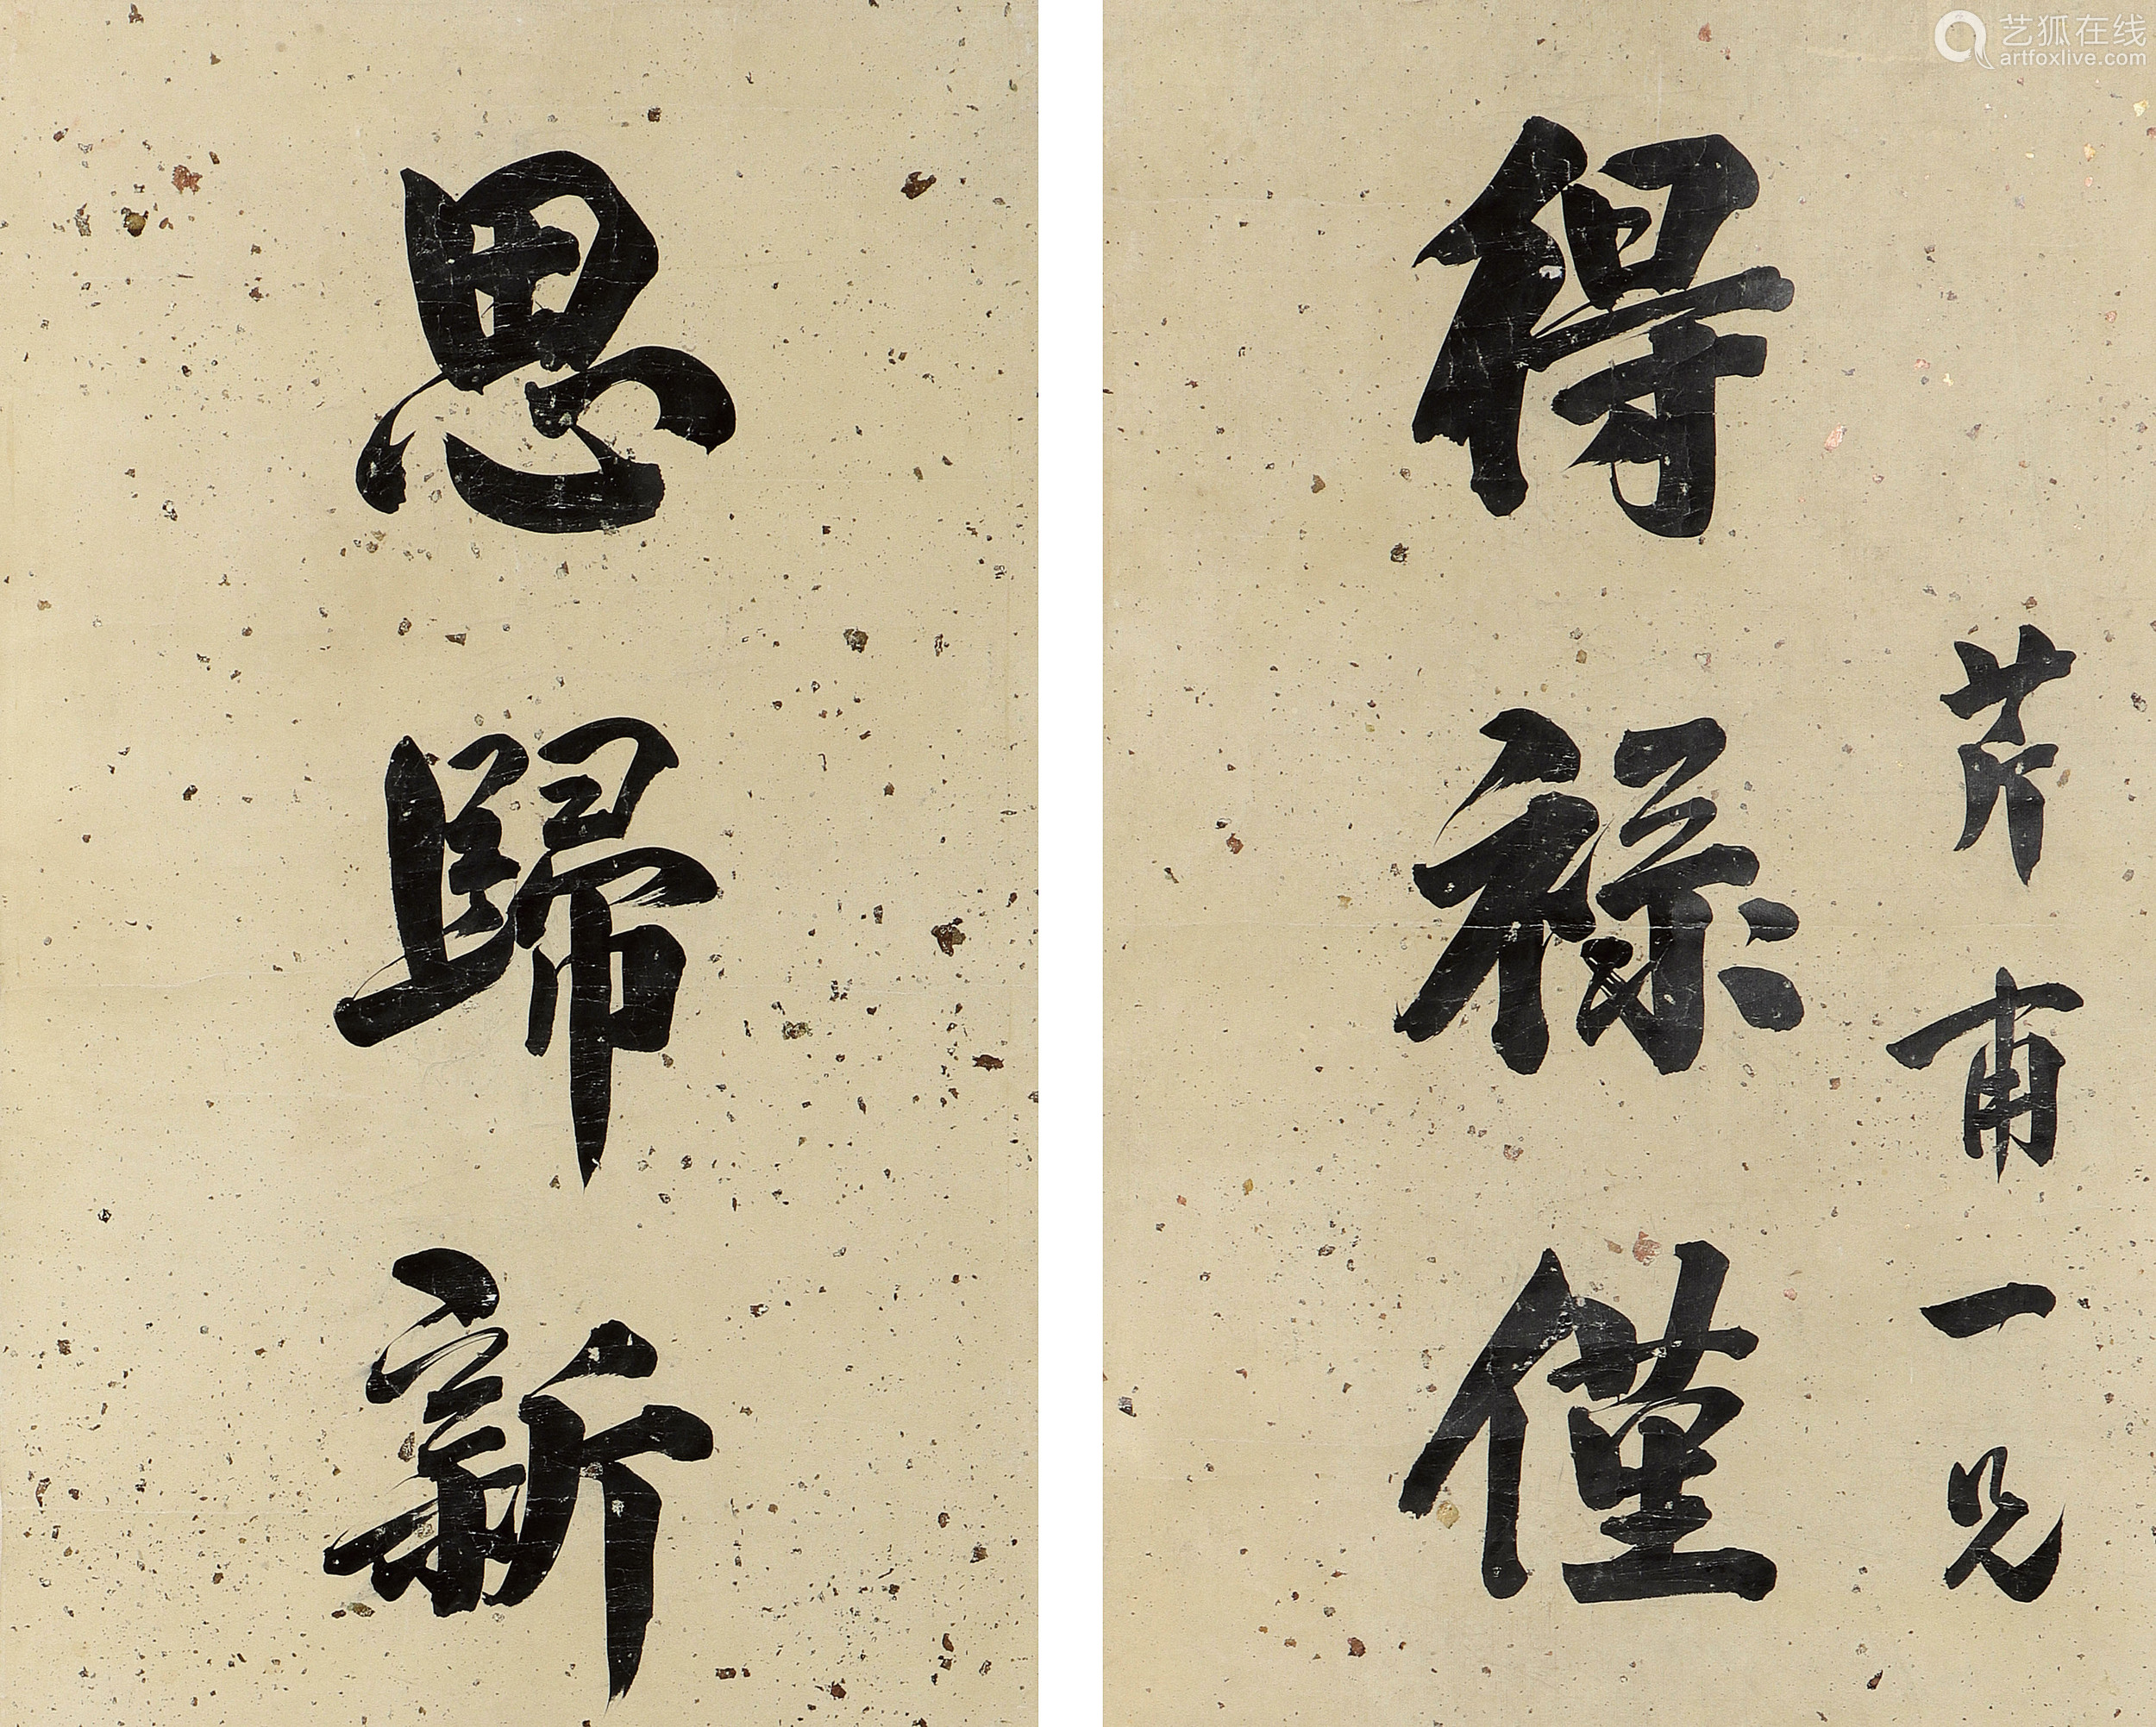 芹甫一兄
得禄僅
思歸新
艺狐在线
artfoxlive.com